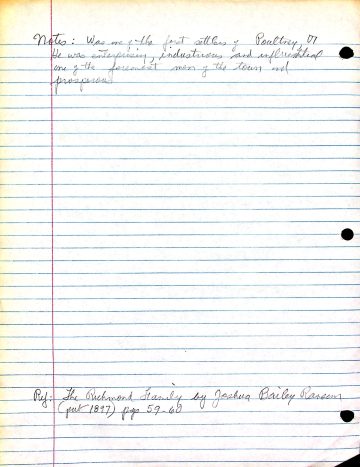 Notes: Was one of the first settlers of Poultney, VT
He was enterprising, industrious and influential
one of the foremost men of the town and
prosperous
Ref: The Richmond Family by Joshua Bailey Ransom
(pub 1897) pgs 59-60